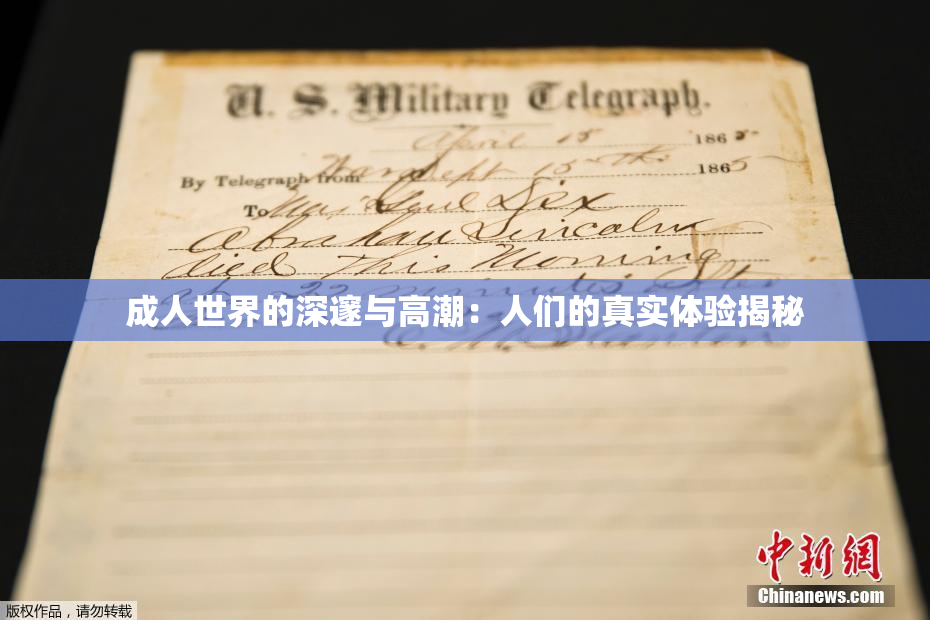 U. S. Military Telegraph.
April 15 1865
By Telegraph from War Dept 15th 1865
To Maj Genl Dix
Abraham Lincoln
died This Morning
at 22 minutes after
成人世界的深邃与高潮：人们的真实体验揭秘
E. M. Stanton
中新网
Chinanews.com
版权作品，请勿转载